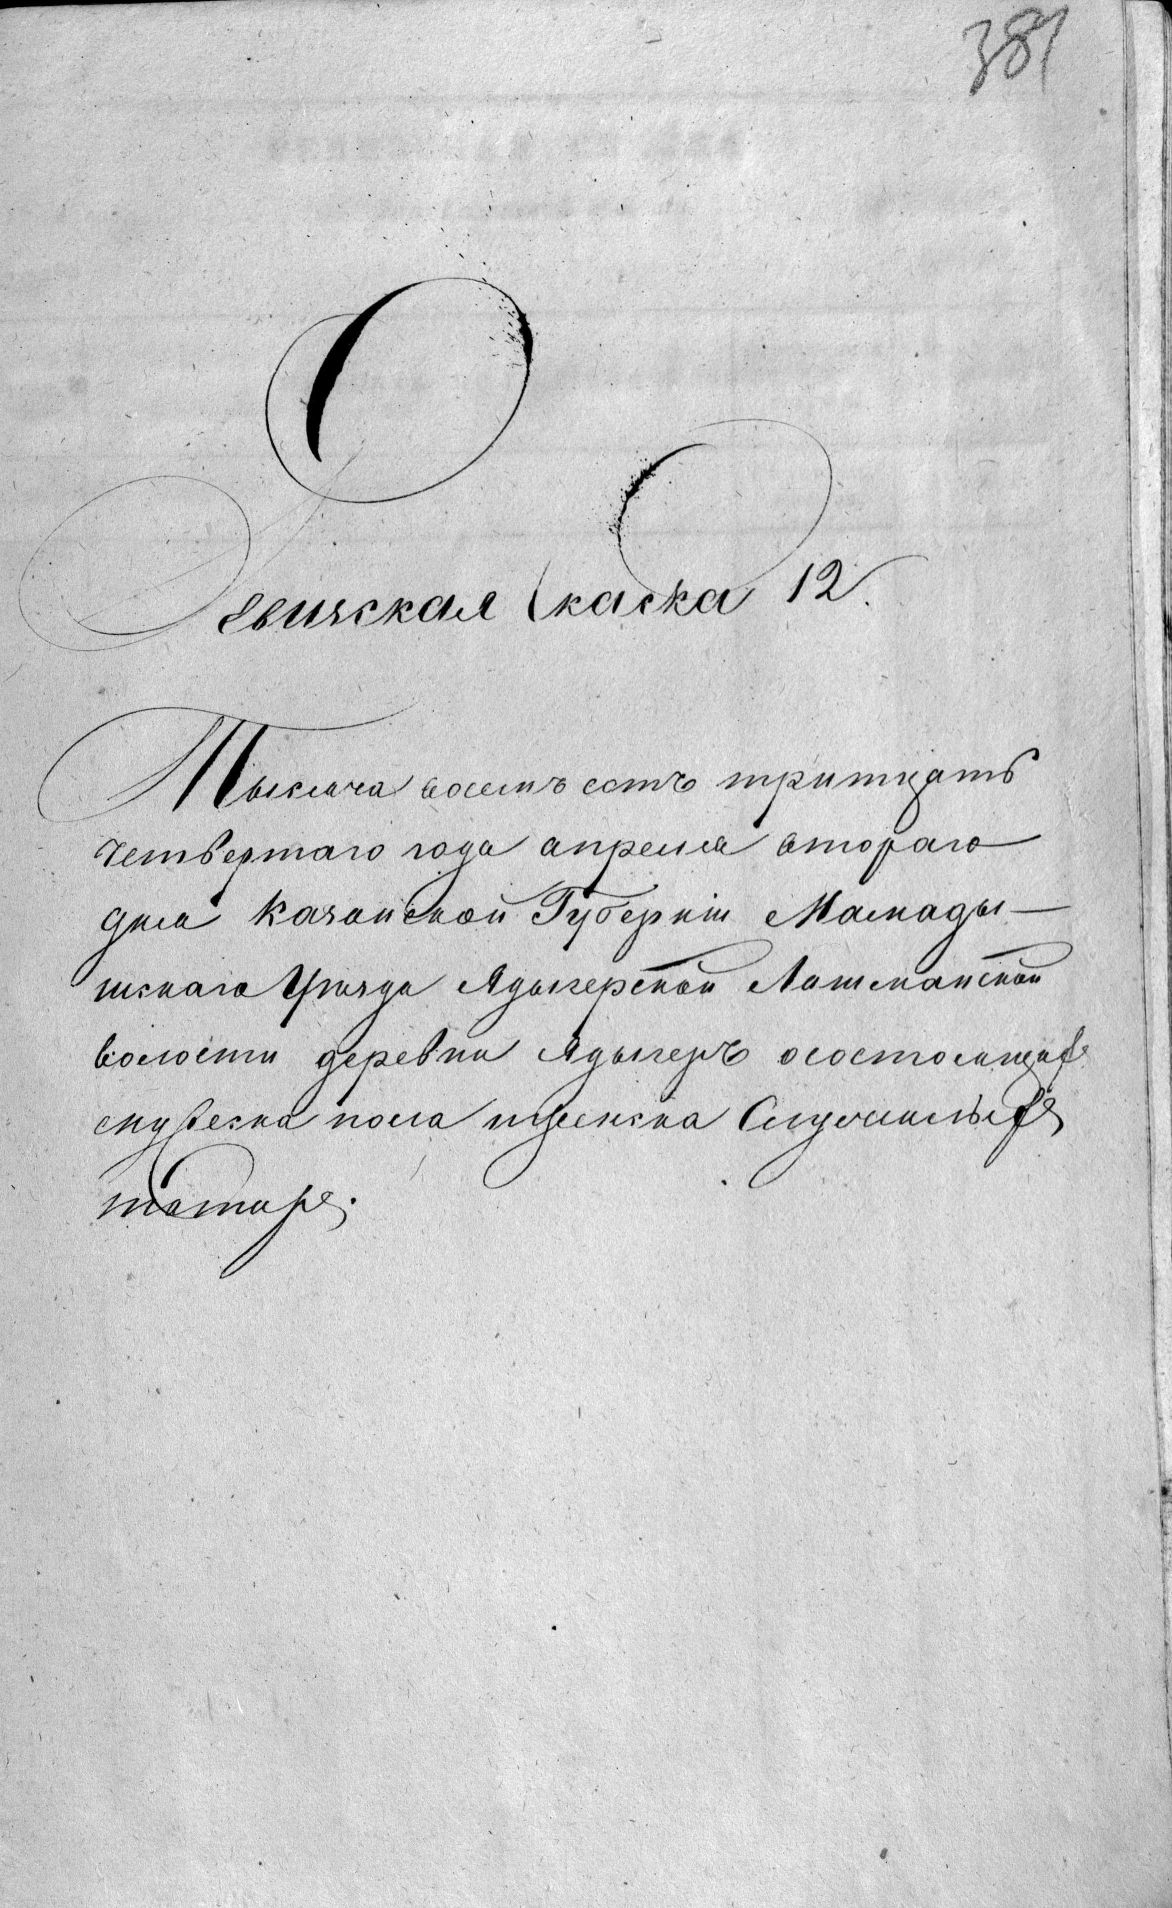 381
Ревижская Скаска 12.
Тысяча восемъ сотъ тритцать
четвертаго года апреля втораго
дня Казанской Губернiи Мамады-
шскаго Уѣзда Ядыгерской Лашманской
волости деревни Ядыгеръ осостоящихъ
мужеска пола и женска Служилыхъ
татаръ.